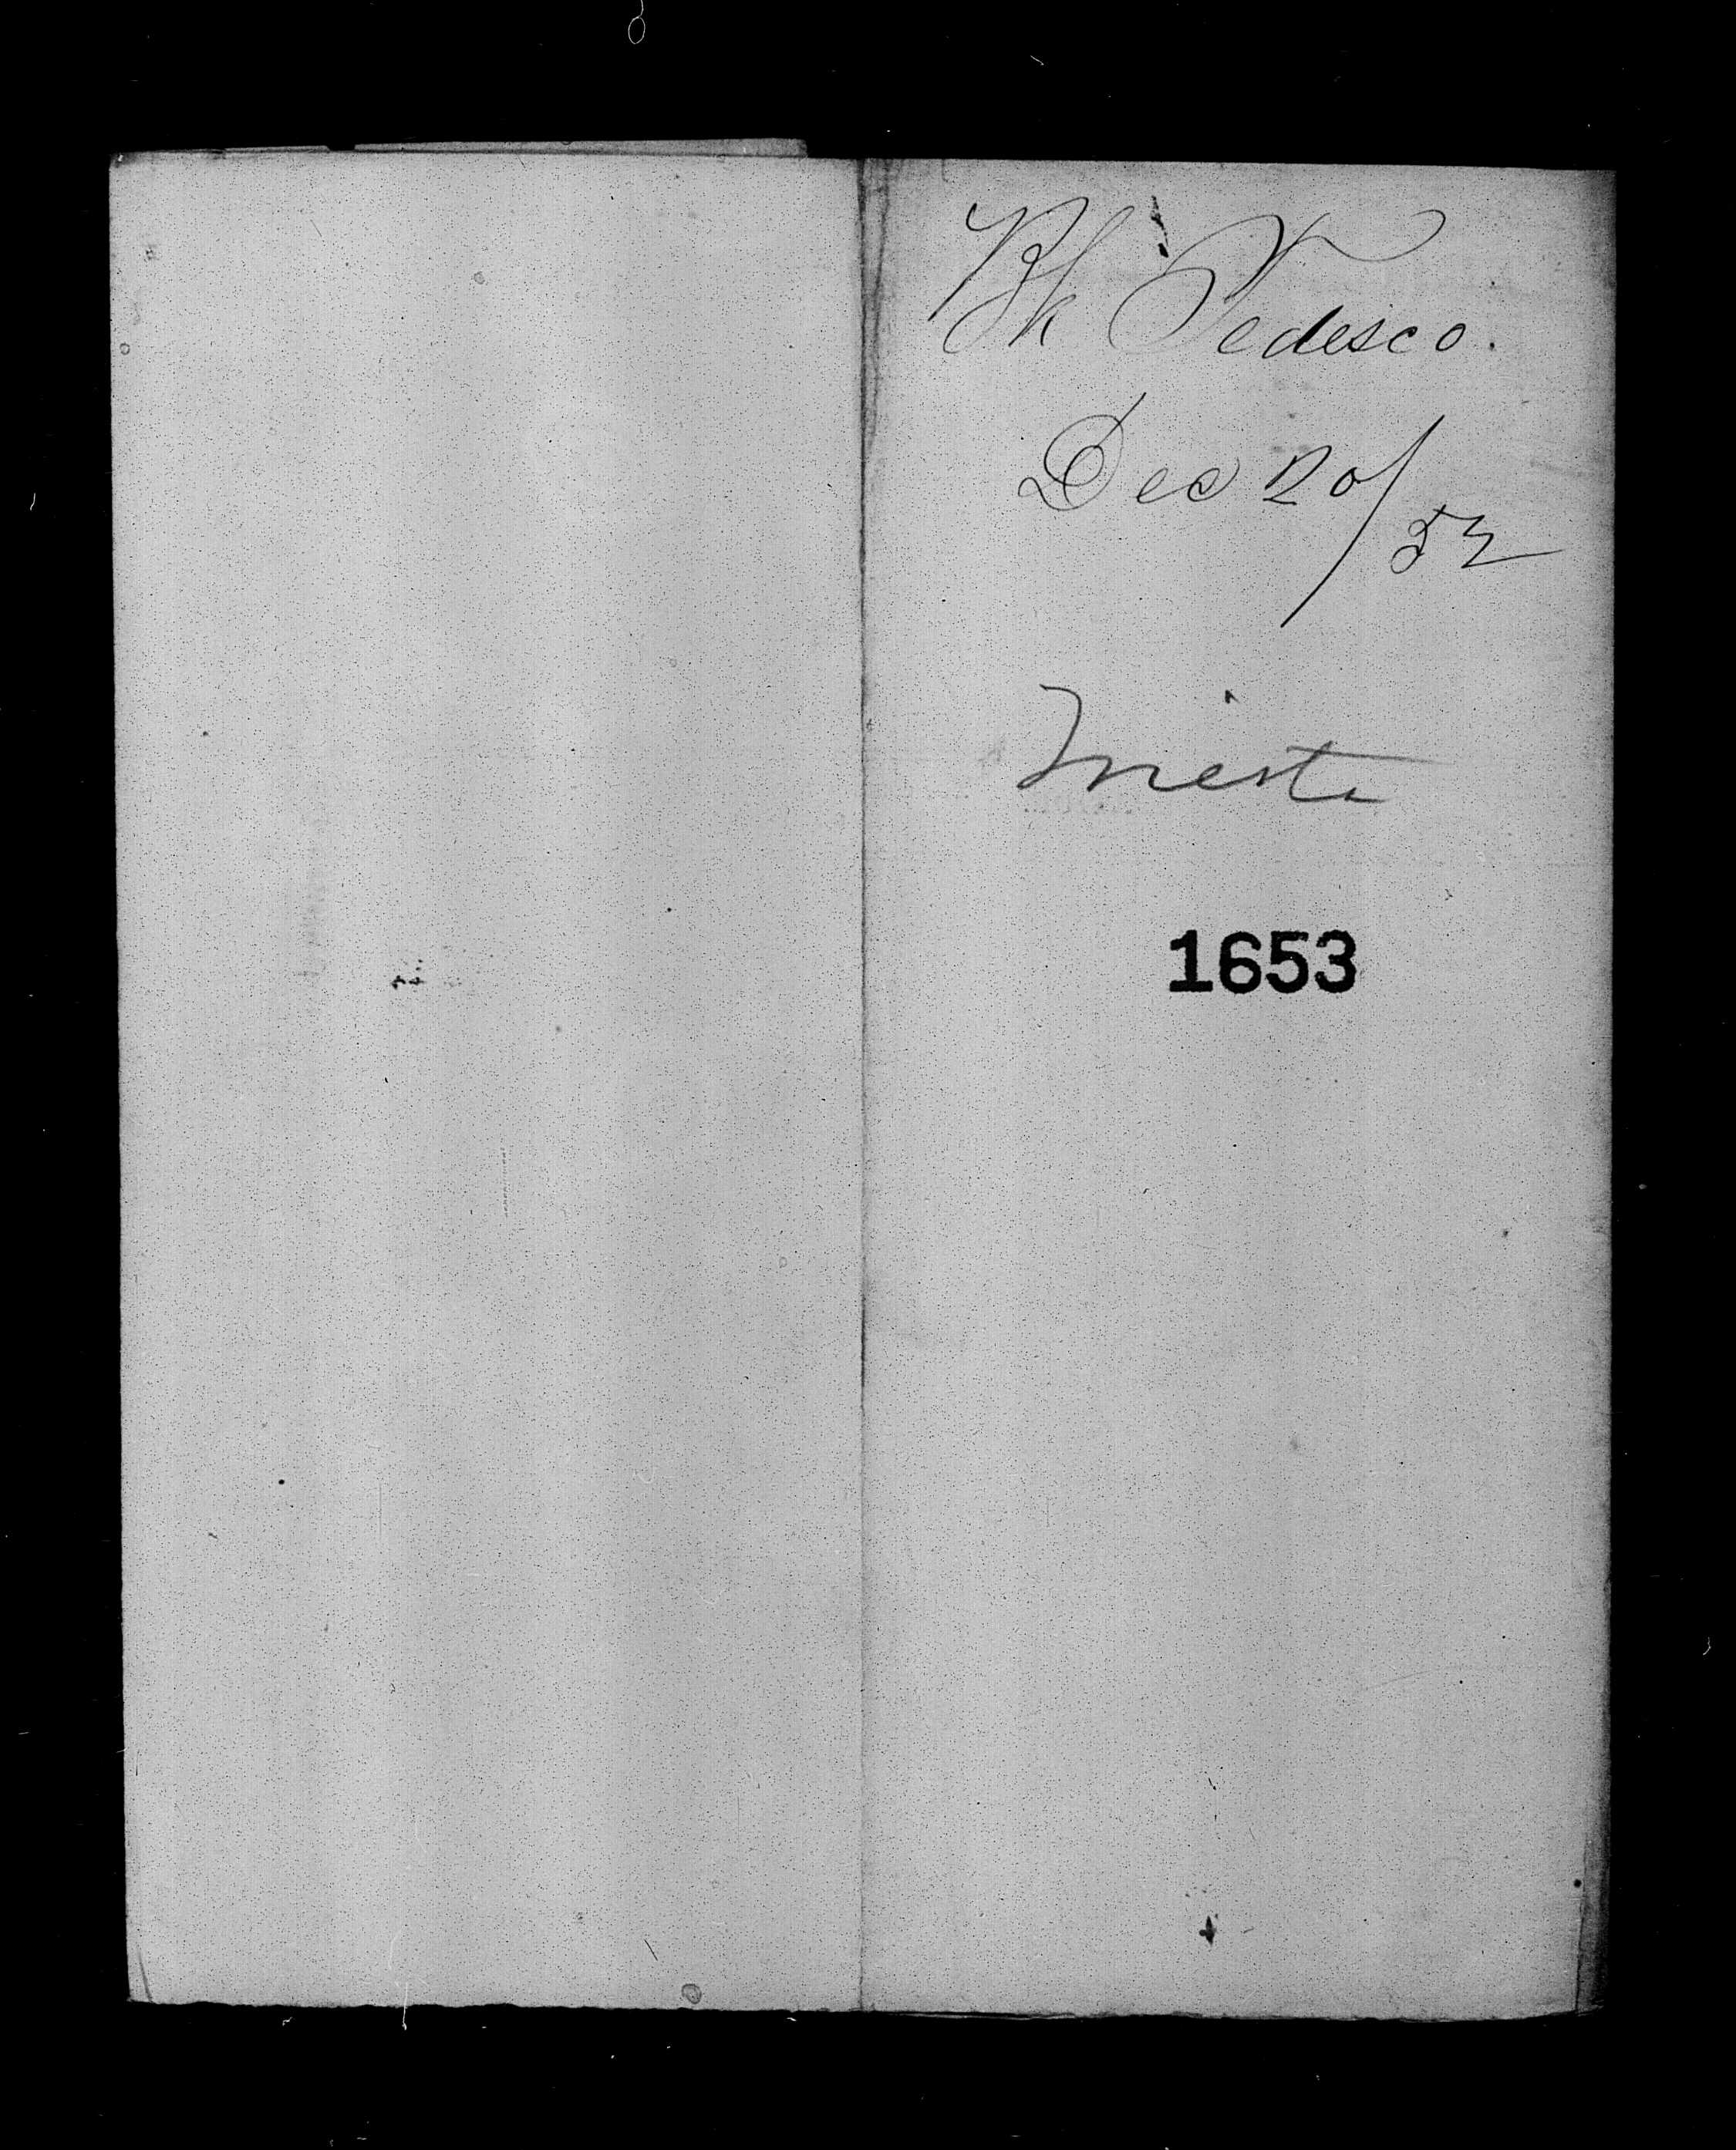 Bk Tedesco.
Dec 20/52
Trieste
1653